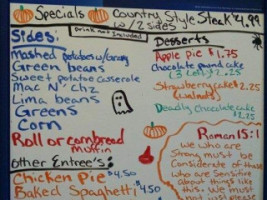 Specials Country Style Steak $4.99
w/2 sides
Drink not included
Sides:
Mashed potatoes w/Gravy
Green beans
Sweet potato casserole
Mac N' Chz
Lima beans
Greens
Corn
Roll or cornbread
muffin
Other Entree's:
Chicken Pie $4.50
Baked Spaghetti $4.50
Desserts
Apple pie $1.75
Chocolate pound cake
Strawberry cake $2.25
(walnuts)
Deadly Chocolate cake
$2.25
Romans 15:1
We who are
strong must be
considerate of those
who are sensitive
about things like
this. We must
not just please